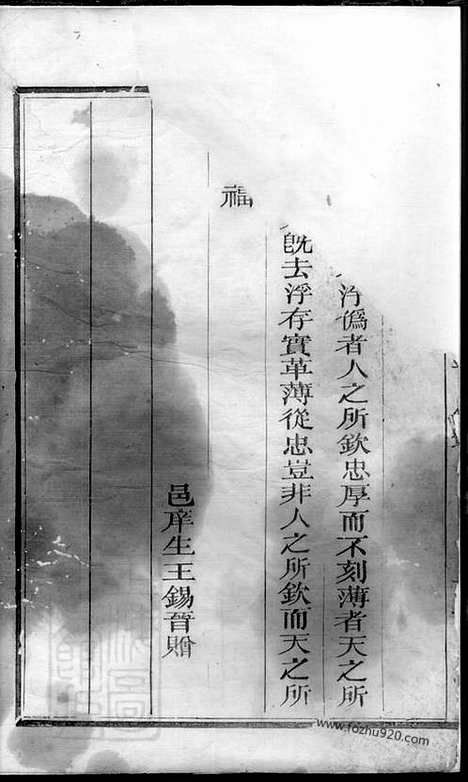 浮偽者人之所欽忠厚而不刻薄者天之所
既去浮存實革薄從忠豈非人之所欽而天之所
福
邑庠生王錫晉贈
www.fozhu920.com